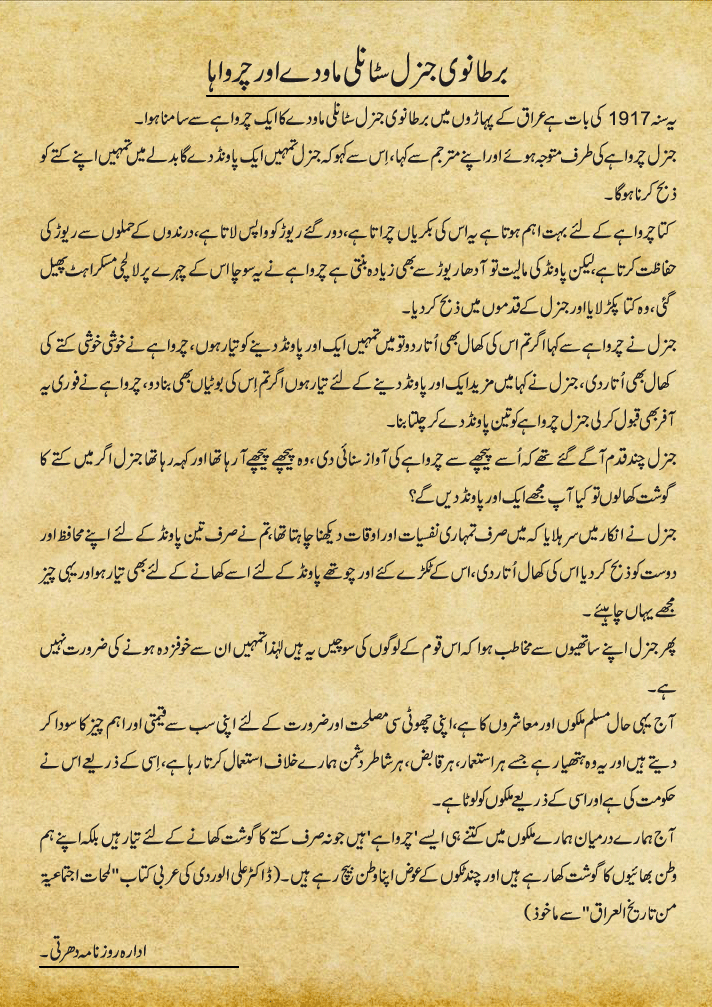 برطانوی جنرل سٹانلی ماودے اور چرواہا
یہ سنہ 1917 کی بات ہے عراق کے پہاڑوں میں برطانوی جنرل سٹانلی ماودے کا ایک چرواہے سے سامنا ہوا۔
جنرل چرواہے کی طرف متوجہ ہوئے اور اپنے مترجم سے کہا، اِس سے کہو کہ جنرل تمہیں ایک پاونڈ دے گا بدلے میں تمہیں اپنے کتے کو
ذبح کرنا ہو گا۔
کتا چرواہے کے لئے بہت اہم ہوتا ہے یہ اس کی بکریاں چراتا ہے، دور گئے ریوڑ کو واپس لاتا ہے، درندوں کے حملوں سے ریوڑ کی
حفاظت کرتا ہے، لیکن پاونڈ کی مالیت تو آدھا ریوڑ سے بھی زیادہ بنتی ہے چرواہے نے یہ سوچا اس کے چہرے پر لالچی مسکراہٹ پھیل
گئی، وہ کتا پکڑ لایا اور جنرل کے قدموں میں ذبح کر دیا۔
جنرل نے چرواہے سے کہا اگر تم اس کی کھال بھی اُتار دو تو میں تمہیں ایک اور پاونڈ دینے کو تیار ہوں، چرواہے نے خوشی خوشی کتے کی
کھال بھی اُتار دی، جنرل نے کہا میں مزید ایک اور پاونڈ دینے کے لئے تیار ہوں اگر تم اِس کی بوٹیاں بھی بنا دو، چرواہے نے فوری یہ
آفر بھی قبول کر لی جنرل چرواہے کو تین پاونڈ دے کر چلتا بنا۔
جنرل چند قدم آگے گئے تھے کہ اُسے پیچھے سے چرواہے کی آواز سنائی دی، وہ پیچھے پیچھے آ رہا تھا اور کہہ رہا تھا جنرل اگر میں کتے کا
گوشت کھا لوں تو کیا آپ مجھے ایک اور پاونڈ دیں گے؟
جنرل نے انکار میں سر ہلایا کہ میں صرف تمہاری نفسیات اور اوقات دیکھنا چاہتا تھا، تم نے صرف تین پاونڈ کے لئے اپنے محافظ اور
دوست کو ذبح کر دیا اس کی کھال اُتار دی، اس کے ٹکڑے کئے اور چوتھے پاونڈ کے لئے اسے کھانے کے لئے بھی تیار ہو اور یہی چیز
مجھے یہاں چاہیئے ۔
پھر جنرل اپنے ساتھیوں سے مخاطب ہوا کہ اس قوم کے لوگوں کی سوچیں یہ ہیں لہٰذا تمہیں ان سے خوفزدہ ہونے کی ضرورت نہیں
ہے۔
آج یہی حال مسلم ملکوں اور معاشروں کا ہے، اپنی چھوٹی سی مصلحت اور ضرورت کے لئے اپنی سب سے قیمتی اور اہم چیز کا سودا کر
دیتے ہیں اور یہ وہ ہتھیار ہے جسے ہر استعمار، ہر قابض، ہر شاطر دشمن ہمارے خلاف استعمال کرتا رہا ہے، اِسی کے ذریعے اس نے
حکومت کی ہے اور اسی کے ذریعے ملکوں کو لوٹا ہے۔
آج ہمارے درمیان ہمارے ملکوں میں کتنے ہی ایسے 'چرواہے' ہیں جو نہ صرف کتے کا گوشت کھانے کے لئے تیار ہیں بلکہ اپنے ہم
وطن بھائیوں کا گوشت کھا رہے ہیں اور چند ٹکوں کے عوض اپنا وطن بیچ رہے ہیں۔ (ڈاکٹر علی الوردی کی عربی کتاب "لمحات اجتماعیۃ
من تاریخ العراق" سے ماخوذ)
ادارہ روزنامہ دھرتی ۔